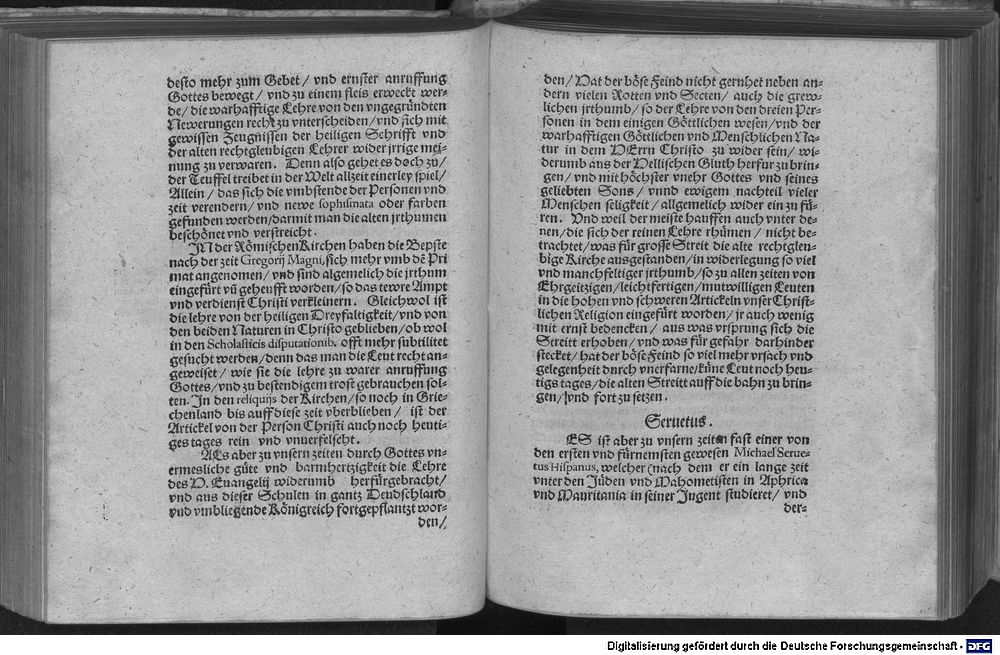 desto mehr zum Gebet / vnd ernster anruffung
Gottes bewegt / vnd zu einem fleis erweckt wer-
de / die warhafftige Lehre von den vngegründten
Newerungen recht zu vnterscheiden / vnd sich mit
gewissen Zeugnissen der heiligen Schrifft vnd
der alten rechtgleubigen Lehrer wider jrrige mei-
nung zu verwaren. Denn also gehet es doch zu /
der Teuffel treibet in der Welt allzeit einerley spiel /
Allein / das sich die vmbstende der Personen vnd
zeit verendern / vnd newe sophismata oder farben
gefunden werden / darmit man die alten jrthumen
beschönet vnd verstreicht.
IN der Römischen Kirchen haben die Bepste
nach der zeit Gregorij Magni, sich mehr vmb dē Pri
mat angenomen / vnd sind algemelich die jrthum
eingefürt vn̄ geheufft worden / so das tewre Ampt
vnd verdienst Christi verkleinern. Gleichwol ist
die lehre von der heiligen Dreyfaltigkeit / vnd von
den beiden Naturen in Christo geblieben / ob wol
in den Scholasticis disputationib. offt mehr subtilitet
gesucht werden / denn das man die Leut recht an-
geweiset / wie sie die lehre zu warer anruffung
Gottes / vnd zu bestendigem trost gebrauchen sol-
ten. In den reliquijs der Kirchen / so noch in Grie-
chenland bis auff diese zeit vberblieben / ist der
Artickel von der Person Christi auch noch heuti-
ges tages rein vnd vnuerfelscht.
ALs aber zu vnsern zeiten durch Gottes vn-
ermesliche güte vnd barmhertzigkeit die Lehre
des H. Euangelij widerumb herfürgebracht /
vnd aus dieser Schulen in gantz Deudschland
vnd vmbliegende Königreich fortgepflantzt wor-
den /
den / Hat der böse Feind nicht geruhet neben an-
dern vielen Rotten vnd Secten / auch die grew-
lichen jrthumb / so der Lehre von den dreien Per-
sonen in dem einigen Göttlichen wesen / vnd der
warhafftigen Göttlichen vnd Menschlichen Na-
tur in dem HErrn Christo zu wider sein / wi-
derumb aus der Hellischen Gluth herfur zu brin-
gen / vnd mit höchster vnehr Gottes vnd seines
geliebten Sons / vnnd ewigem nachteil vieler
Menschen seligkeit / allgemelich wider ein zu fü-
ren. Vnd weil der meiste hauffen auch vnter de-
nen / die sich der reinen Lehre rhümen / nicht be-
trachtet / was für grosse Streit die alte rechtgleu-
bige Kirche ausgestanden / in widerlegung so viel
vnd manchfeltiger jrthumb / so zu allen zeiten von
Ehrgeitzigen / leichtfertigen / mutwilligen Leuten
in die hohen vnd schweren Artickeln vnser Christ-
lichen Religion eingefürt worden / jr auch wenig
mit ernst bedencken / aus was vrsprung sich die
Streitt erhoben / vnd was für gefahr darhinder
stecket / hat der böse Feind so viel mehr vrsach vnd
gelegenheit durch vnerfarne / küne Leut noch heu-
tigs tages / die alten Streitt auff die bahn zu brin-
gen / vnd fort zu setzen.
Seruetus.
ES ist aber zu vnsern zeiten fast einer von
den ersten vnd fürnemsten gewesen Michael Serue-
tus Hispanus, welcher (nach dem er ein lange zeit
vnter den Jüden vnd Mahometisten in Aphrica
vnd Mauritania in seiner Jugent studieret / vnd
der-
Digitalisierung gefördert durch die Deutsche Forschungsgemeinschaft - DFG